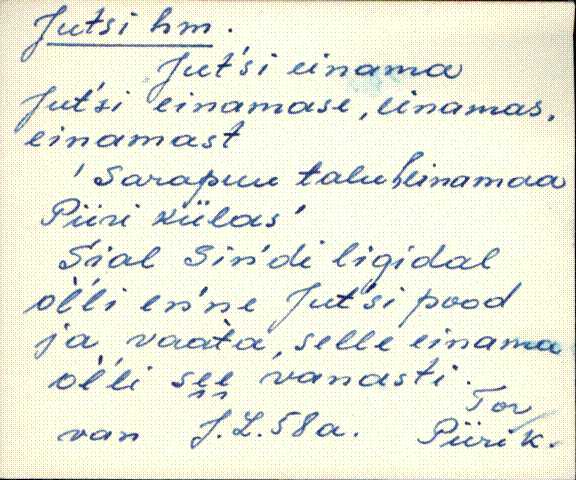 Jutsi hm.
Jut́si einama
Jut́si einamase, einamas,
einamast
'Sarapuu talu heinamaa
Piiri külas'
Śial Sińdi ligidal
oĺĺi eńne Jut́si pood
ja vaata, selle einama
oĺĺi see vanasti.
Tor
van J.L. 58a. Piiri k.